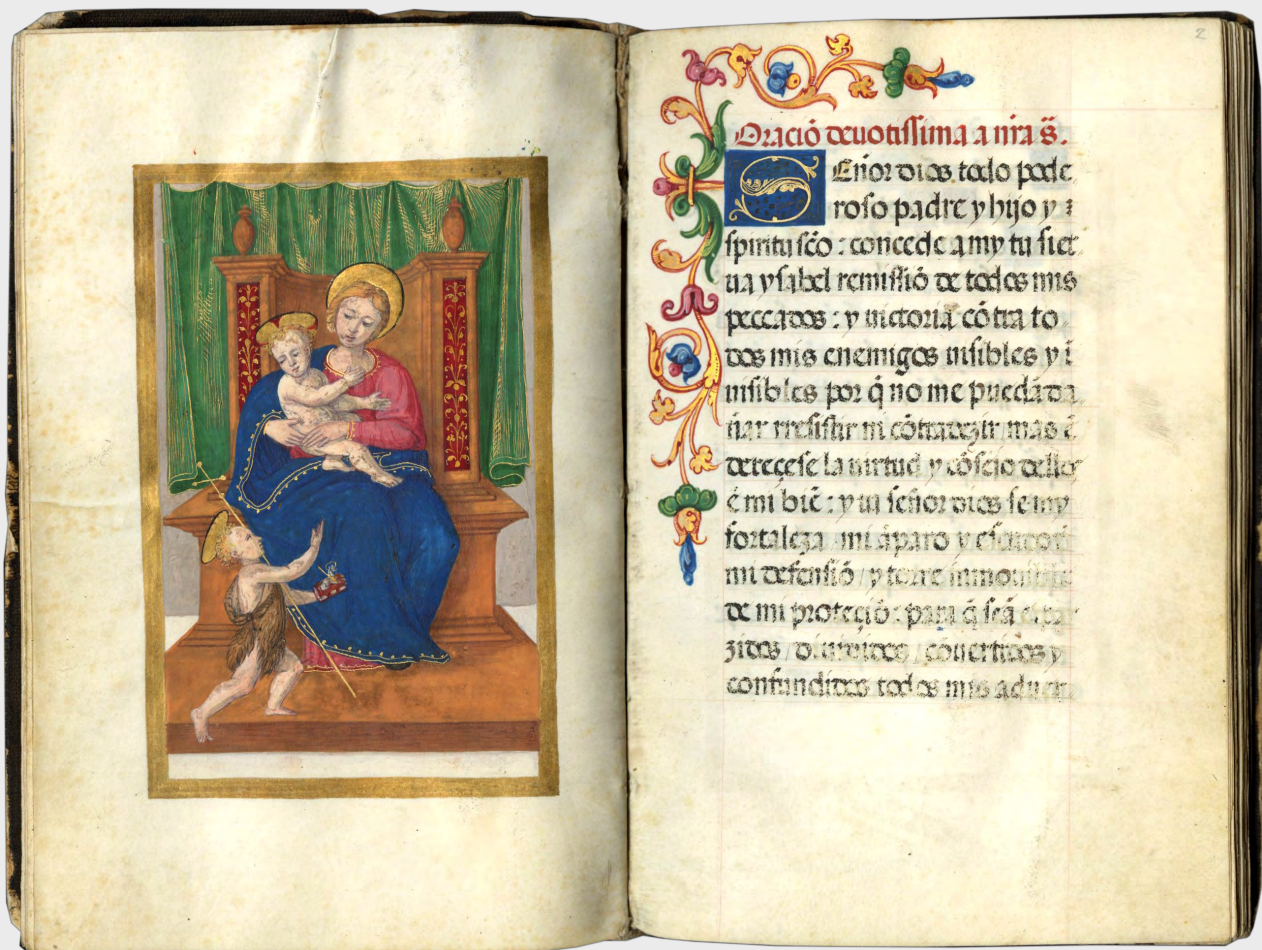 2
Oració deuotissima a nr̃a s̃.
SEñor dios todo pode
roso padre y hijo y
spiritu scõ : concede a my tu sier
ua ysabel remissiõ de todos mis
peccados : y victoria cõtra to
dos mis enemigos visibles y ĩ
uisibles por q̃ no me puedã da
ñar rresistir ni cõtradezir mas ẽ
dereçese la virtud y cõseio dellos
ẽ mi biẽ : y tu señor dios se my
fortaleza mi ãparo y
mi defensiõ / y torre
de mi proteçiõ : para q̃ seã
zidos / / cõuertidos y
confundidos todos mis aduer